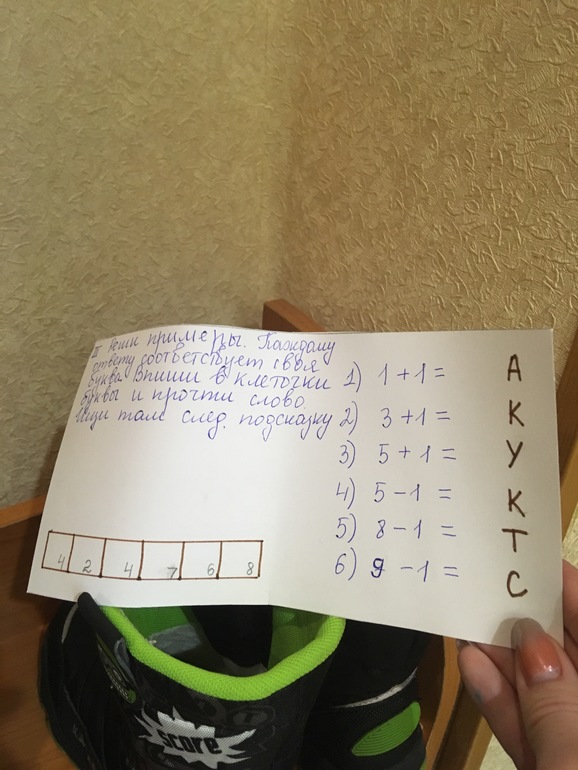 II Реши примеры. Каждому
ответу соответствует своя
буква. Впиши в клеточки
буквы и прочти слово.
Ищи там след. подсказку
1) 1+1= А
2) 3+1= К
3) 5+1= У
4) 5-1= К
5) 8-1= Т
6) 9-1= С
4 2 4 7 6 8
score